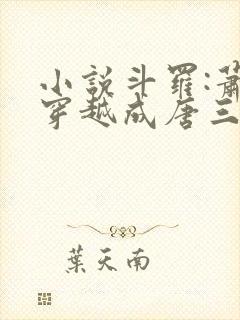 小説斗羅:蕭
穿越成唐三
葉天南